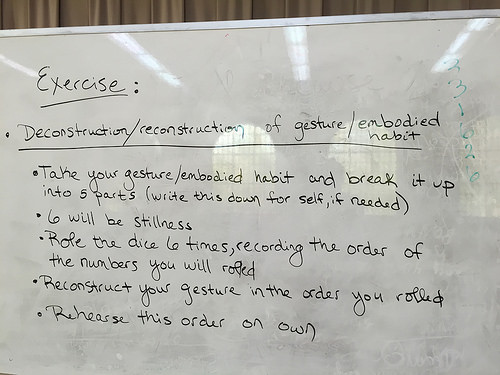 Exercise:
• Deconstruction/reconstruction of gesture/embodied
habit
• Take your gesture/embodied habit and break it up
into 5 parts (write this down for self, if needed)
• 6 will be stillness
• Role the dice 6 times, recording the order of
the numbers you will rolled
• Reconstruct your gesture in the order you rolled
• Rehearse this order on own
3
1
6